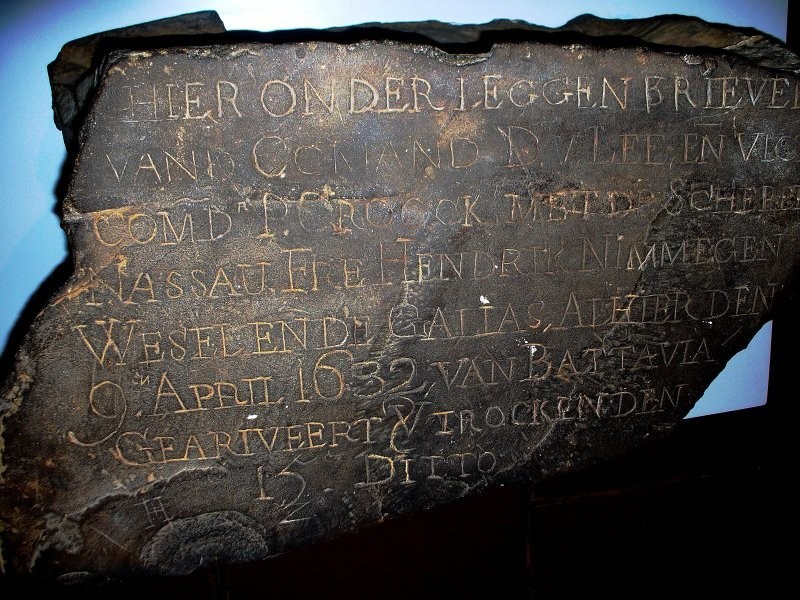 HIER ONDER LEGGEN BRIEVEN
VAND COMAND D.V LEE, EN VIC
COMD P. CROOCK MET D SCHEPEN
NASSAU, FRE HENDRIK NIMMEGEN
WESEL EN DE GALIAS, ALHIER DEN
9.EN APRIL 1632, VAN BATTAVIA
GEARIVEERT & VTROCKEN.DEN
15 DITTO